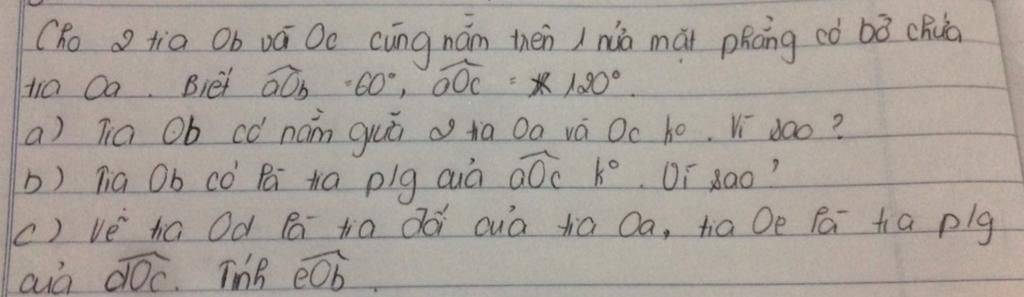 Cho 2 tia Ob và Oc cùng nằm trên 1 nửa mặt phẳng có bờ chứa
tia Oa. Biết aOb = 60°, aOc = 120°.
a) Tia Ob có nằm giữa 2 tia Oa và Oc ko. Vì sao?
b) Tia Ob có là tia p/g của aOc ko. Vì sao?
c) Vẽ tia Od là tia đối của tia Oa, tia Oe là tia p/g
của dOc. Tính eOb.